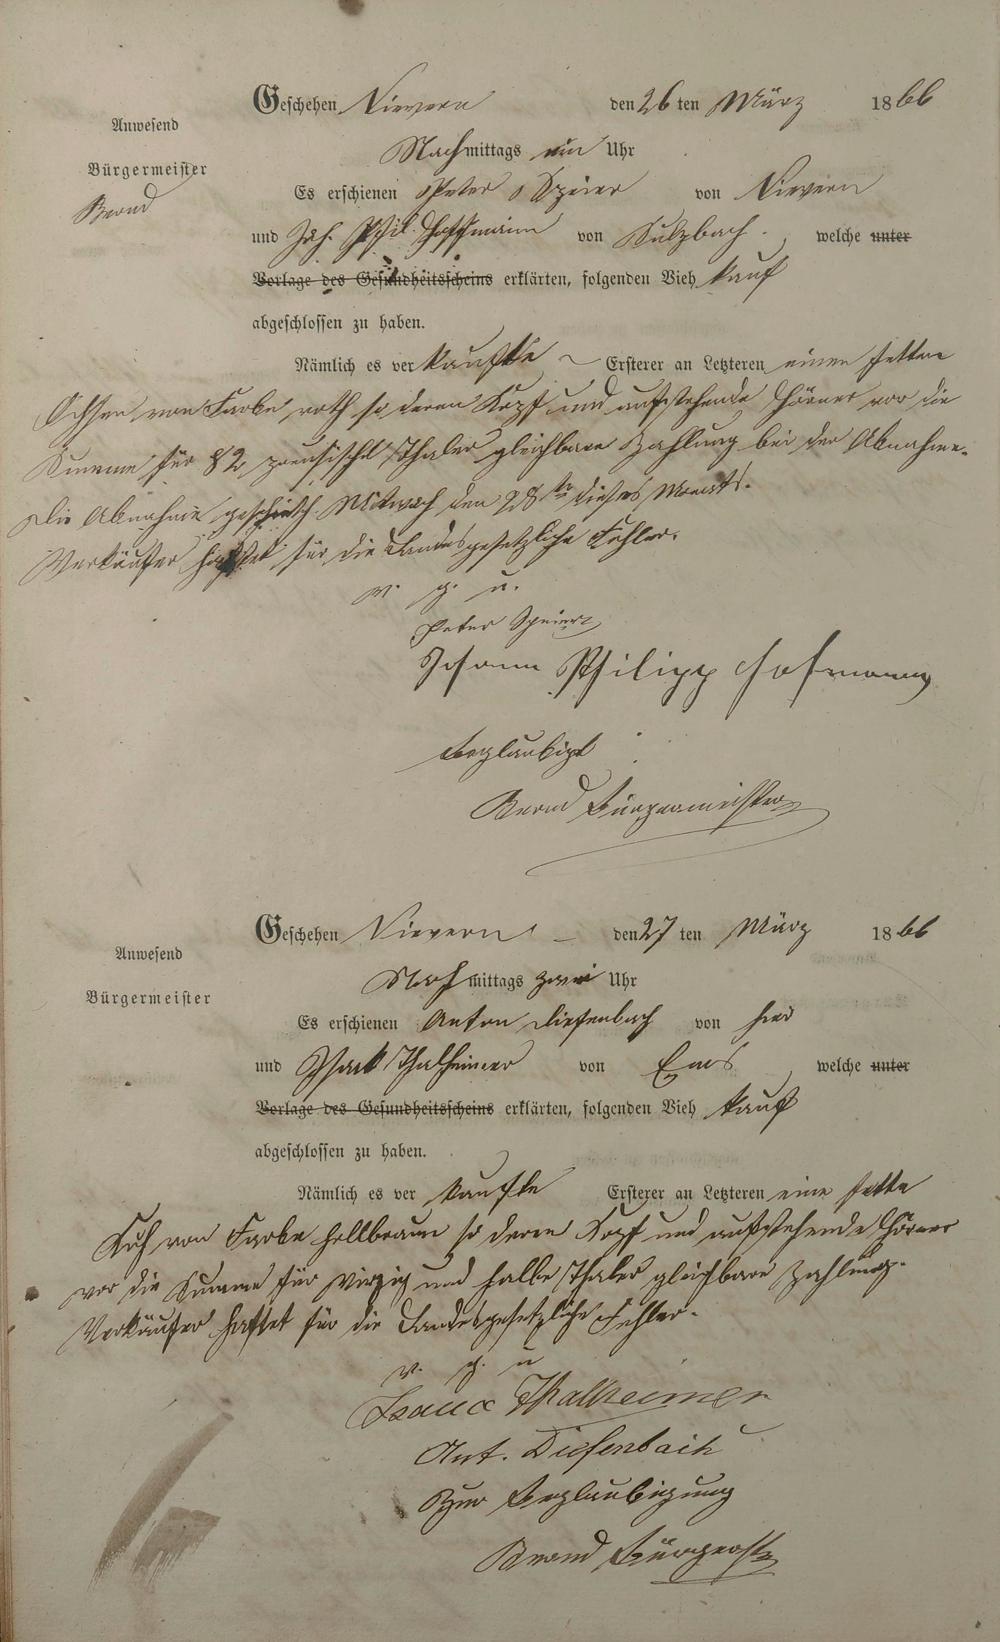 Geschehen Nievern den 26 ten März 1866
Anwesend
Nachmittags ein Uhr
Bürgermeister
Bernd
Es erschienen Peter Speier von Nievern
und Joh. Phil. Hoffmann von Sulzbach, welche unter
Vorlage des Gesundheitsscheins erklärten, folgenden Vieh kauf
abgeschlossen zu haben.
Nämlich es ver kaufte Ersterer an Letzteren einen fetten
Ochsen von Farbe roth so deren Kopf und aufstehende Hörner vor die
Summe für 82 preusische Thaler gleichbare Zahlung bei der Abnahme.
Die Abnahme geschieth Mitwoch den 28ten dieses Monats.
Verkäufer haftet für die Landesgesetzliche Fehler.
v. g. u.
Peter Speier
Johann Philipp Hofmann
Beglaubigt
Bernd Bürgermeister
Geschehen Nievern den 27 ten März 1866
Anwesend
Nachmittags zwei Uhr
Bürgermeister
Es erschienen Anton Diefenbach von hier
und Isack Thalheimer von Ems, welche unter
Vorlage des Gesundheitsscheins erklärten, folgenden Vieh kauf
abgeschlossen zu haben.
Nämlich es ver kaufte Ersterer an Letzteren eine fette
Kuh von Farbe hellbraun so deren Kopf und aufstehende Hörner
vor die Summe für Vierzig und halbe Thaler gleichbare Zahlung.
Verkäufer haftet für die Landesgesetzliche Fehler.
v. g. u
Isaac Thalheimer
Ant. Diefenbach
Zur Beglaubigung
Bernd Bürgerstr